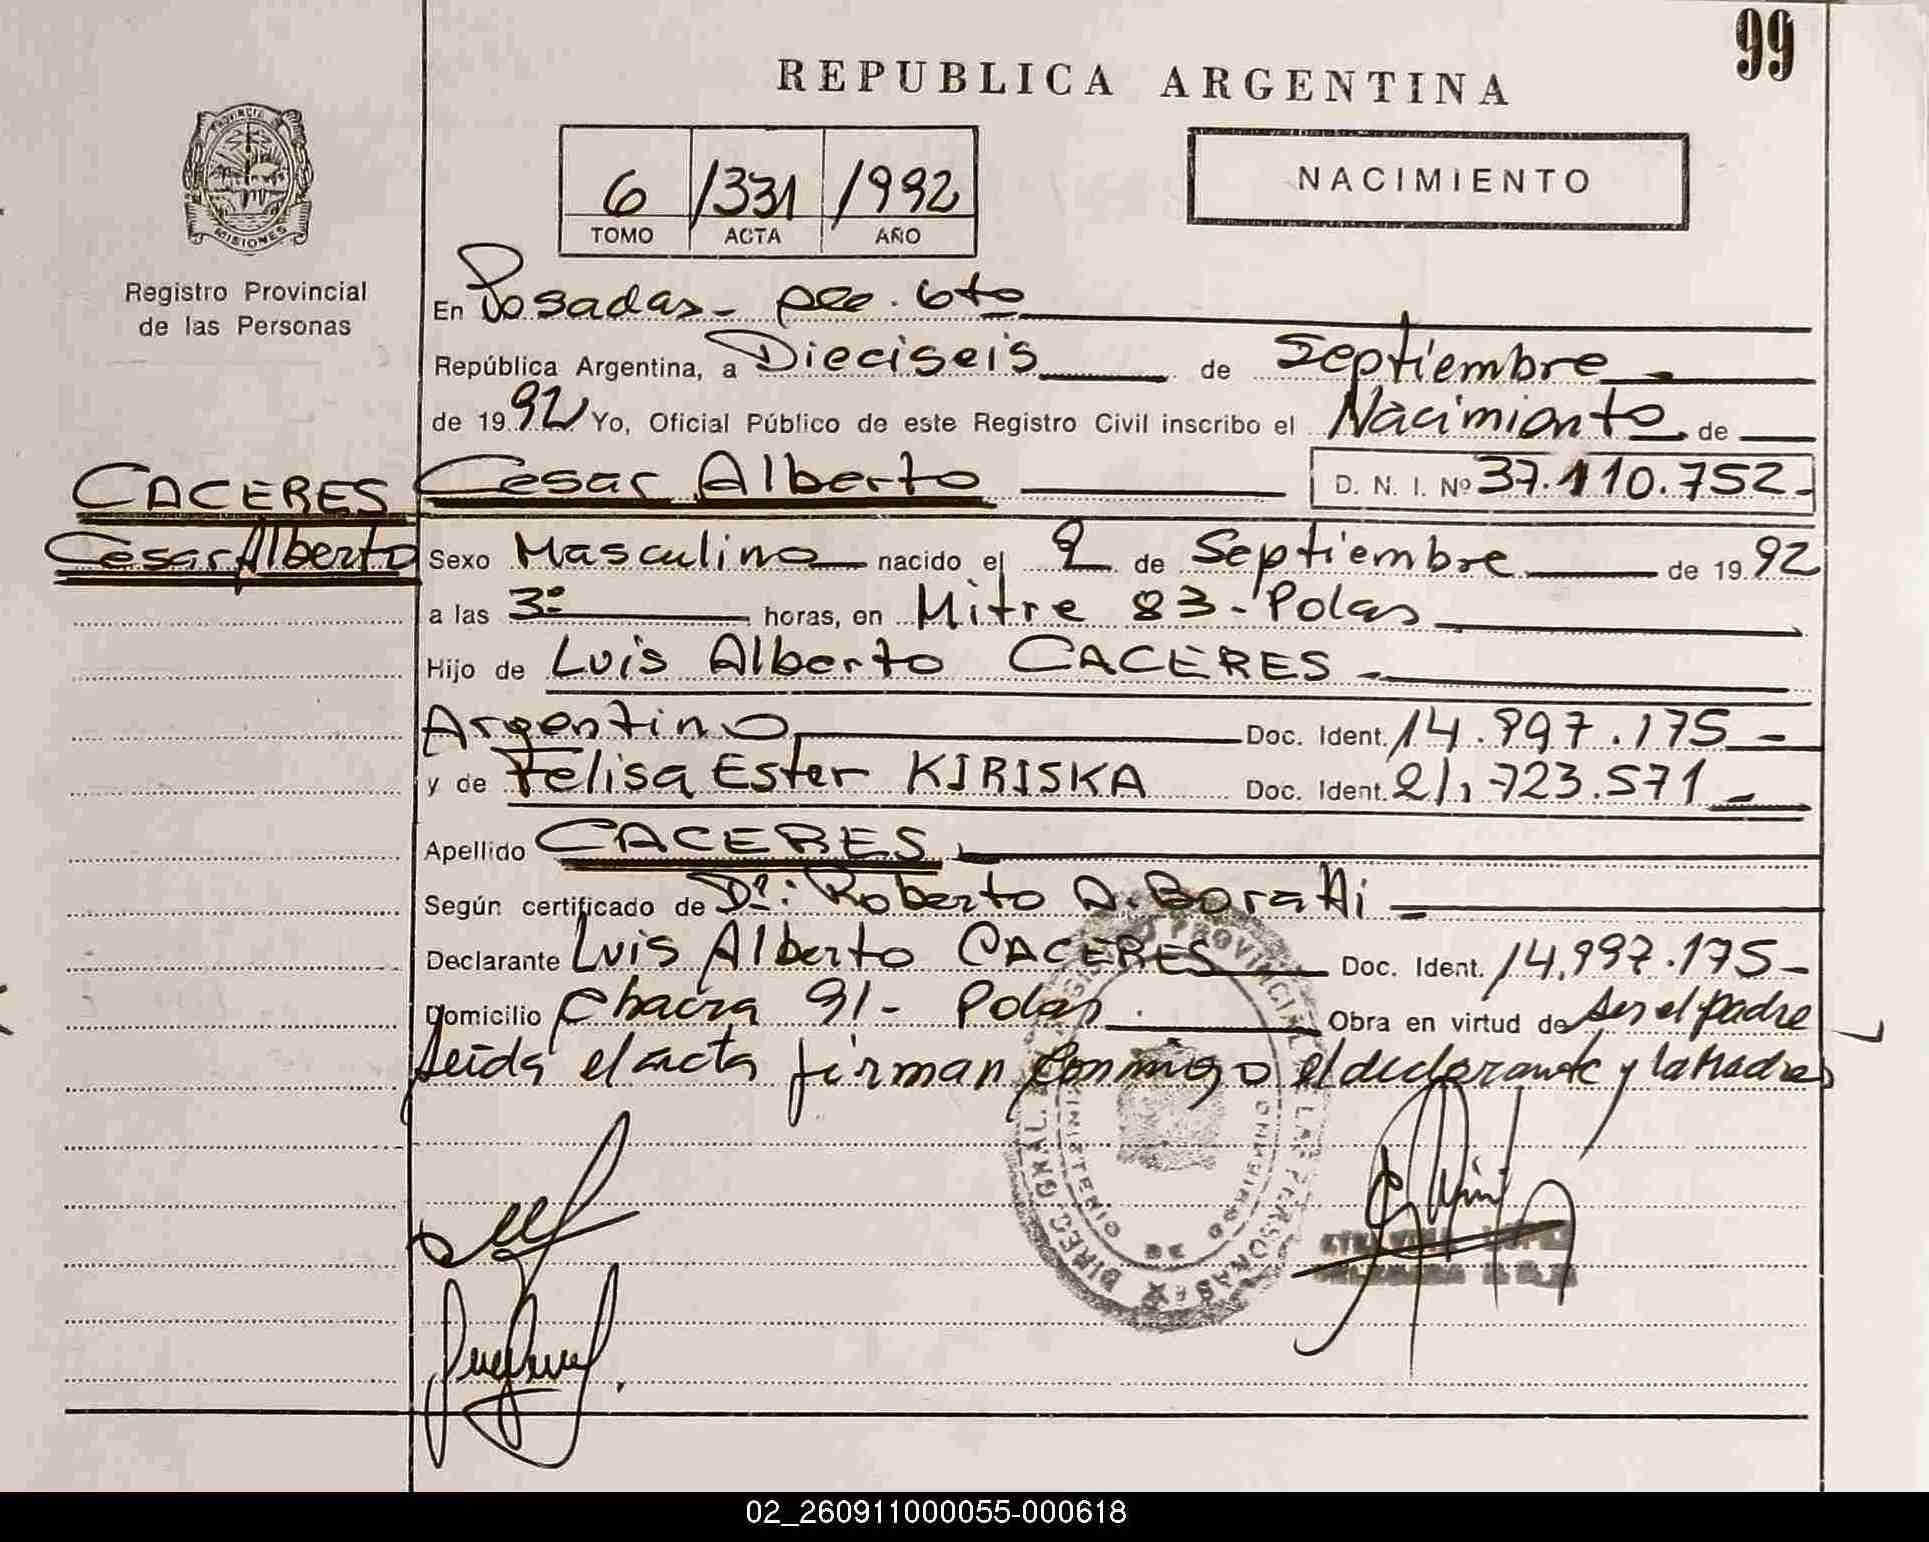 99
REPUBLICA ARGENTINA
PROVINCIA
MISIONES
Registro Provincial
de las Personas
6 /331 /1992
TOMO ACTA AÑO
NACIMIENTO
En Posadas - 6to
República Argentina, a Dieciseis de Septiembre
de 1992 Yo, Oficial Público de este Registro Civil inscribo el Nacimiento de
CACERES
Cesar Alberto
Cesar Alberto D. N. I. Nº 37.110.752
Sexo Masculino nacido el 2 de Septiembre de 1992
a las 3º horas, en Mitre 83 - Pdas
Hijo de Luis Alberto CACERES
Argentino Doc. Ident. 14.997.175
y de Felisa Ester KIRISKA Doc. Ident. 21.723.571
Apellido CACERES
Según certificado de Dr: Roberto A.
Declarante Luis Alberto CACERES Doc. Ident. 14.997.175
Domicilio Chacra 91 - Pdas. Obra en virtud de ser el padre
Leida el acta firman conmigo el declarante y la Madre
02_260911000055-000618